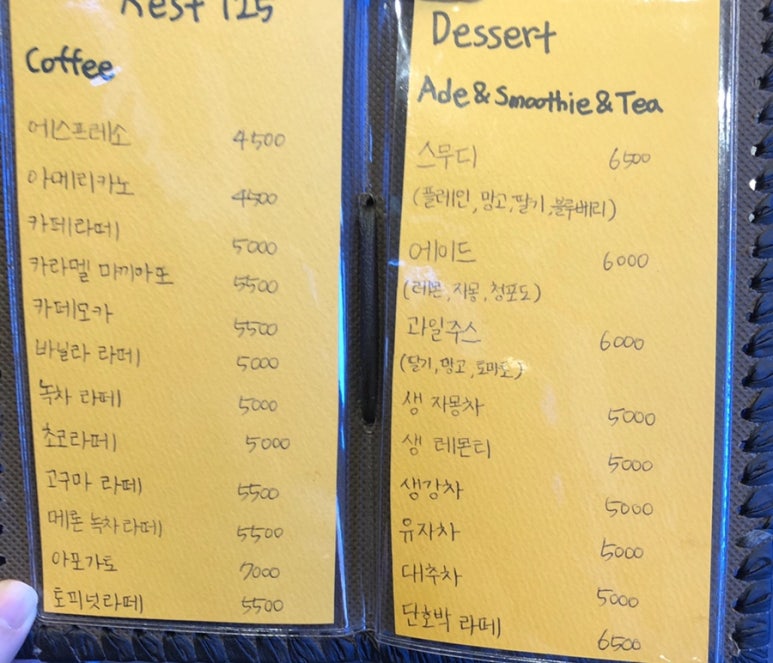 Rest 125
Coffee
에스프레소 4500
아메리카노 4500
카페라떼 5000
카라멜 마끼아또 5500
카페모카 5500
바닐라 라떼 5000
녹차 라떼 5000
초코라떼 5000
고구마 라떼 5500
메론 녹차라떼 5500
아포가토 7000
토피넛라떼 5500
Dessert
Ade & Smoothie & Tea
스무디 6500
(플레인, 망고, 딸기, 블루베리)
에이드 6000
(레몬, 자몽, 청포도)
과일주스 6000
(딸기, 망고, 토마토)
생 자몽차 5000
생 레몬티 5000
생강차 5000
유자차 5000
대추차 5000
단호박 라떼 6500